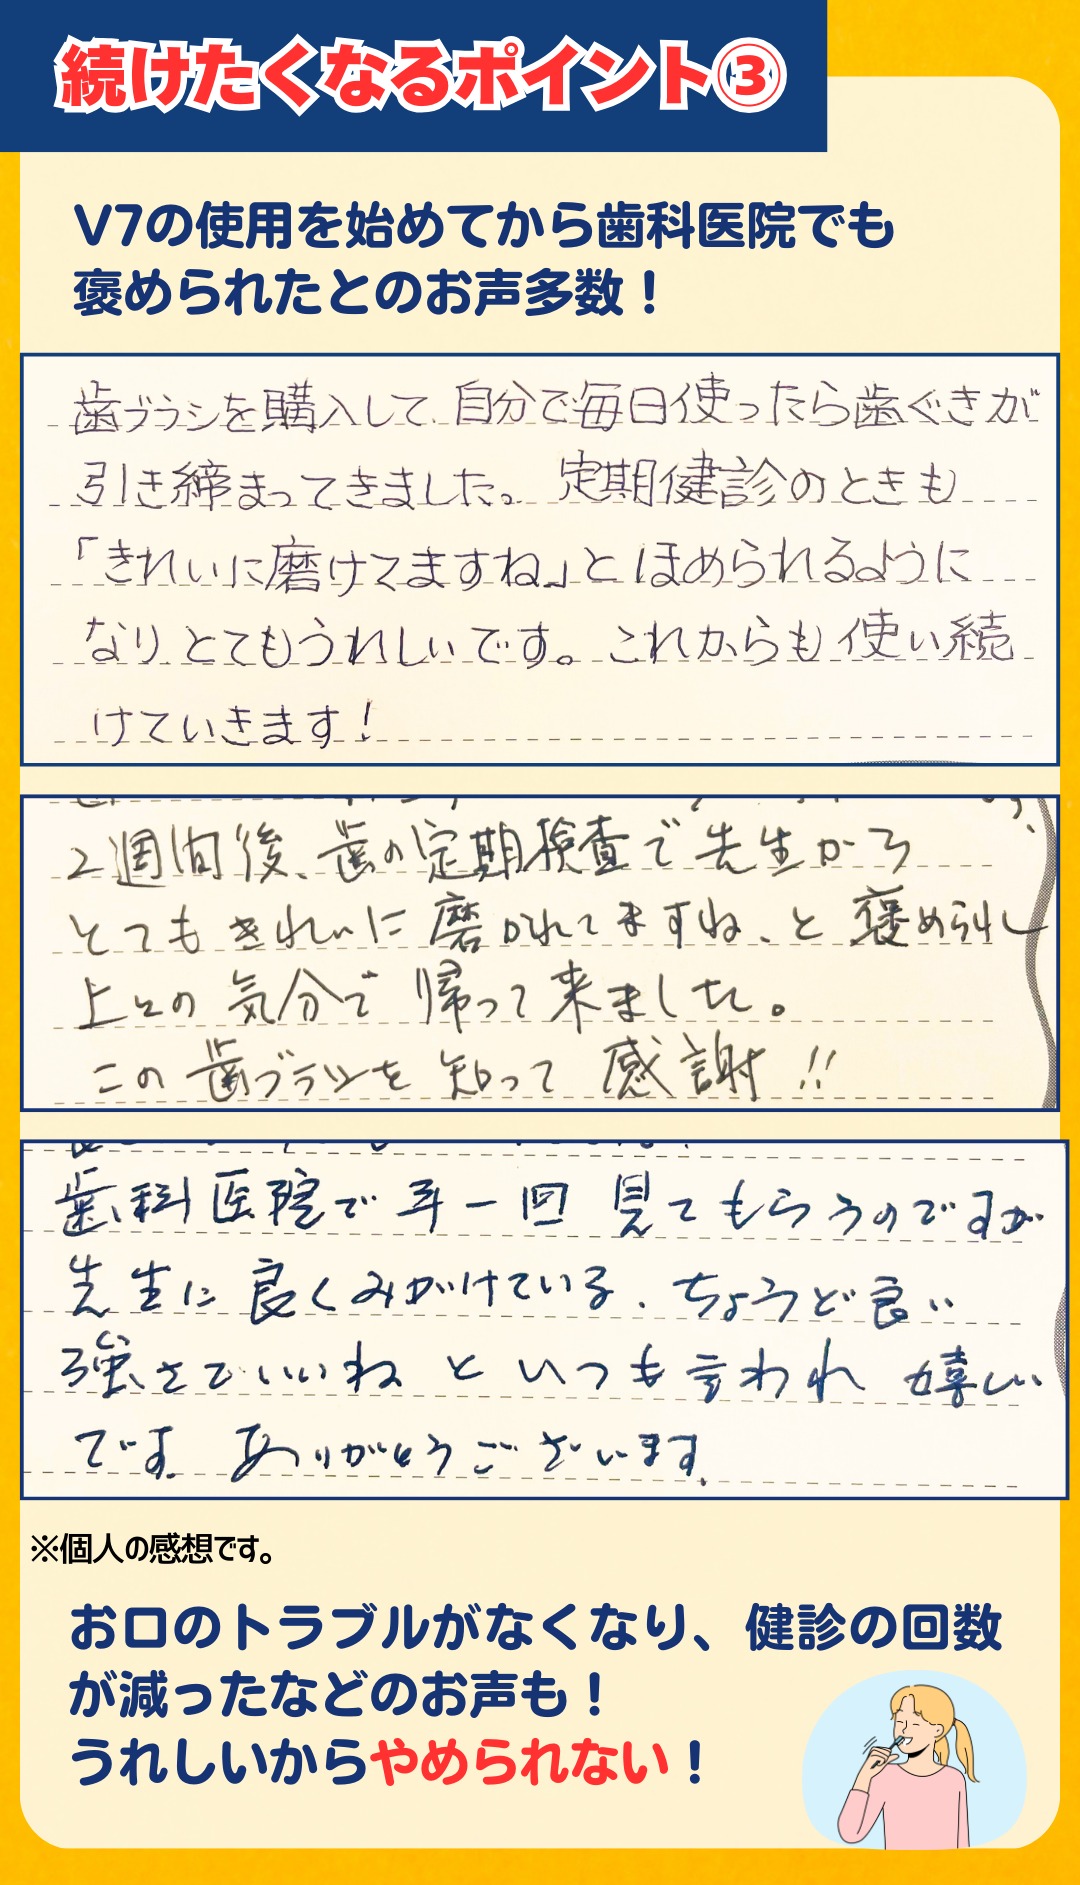 続けたくなるポイント③
V7の使用を始めてから歯科医院でも
褒められたとのお声多数！
歯ブラシを購入して、自分で毎日使ったら歯ぐきが
引き締まってきました。定期健診のときも
「きれいに磨けてますね」とほめられるように
なりとてもうれしいです。これからも使い続
けていきます！
2週間後、歯の定期検査で先生から
とてもきれいに磨かれてますね、と褒められ
上々の気分で帰って来ました。
この歯ブラシを知って感謝!!
歯科医院で年一回見てもらうのですが
先生に良くみがけている、ちょうど良い
強さでいいねといつも言われ嬉しい
です。ありがとうございます。
※個人の感想です。
お口のトラブルがなくなり、健診の回数
が減ったなどのお声も！
うれしいからやめられない！